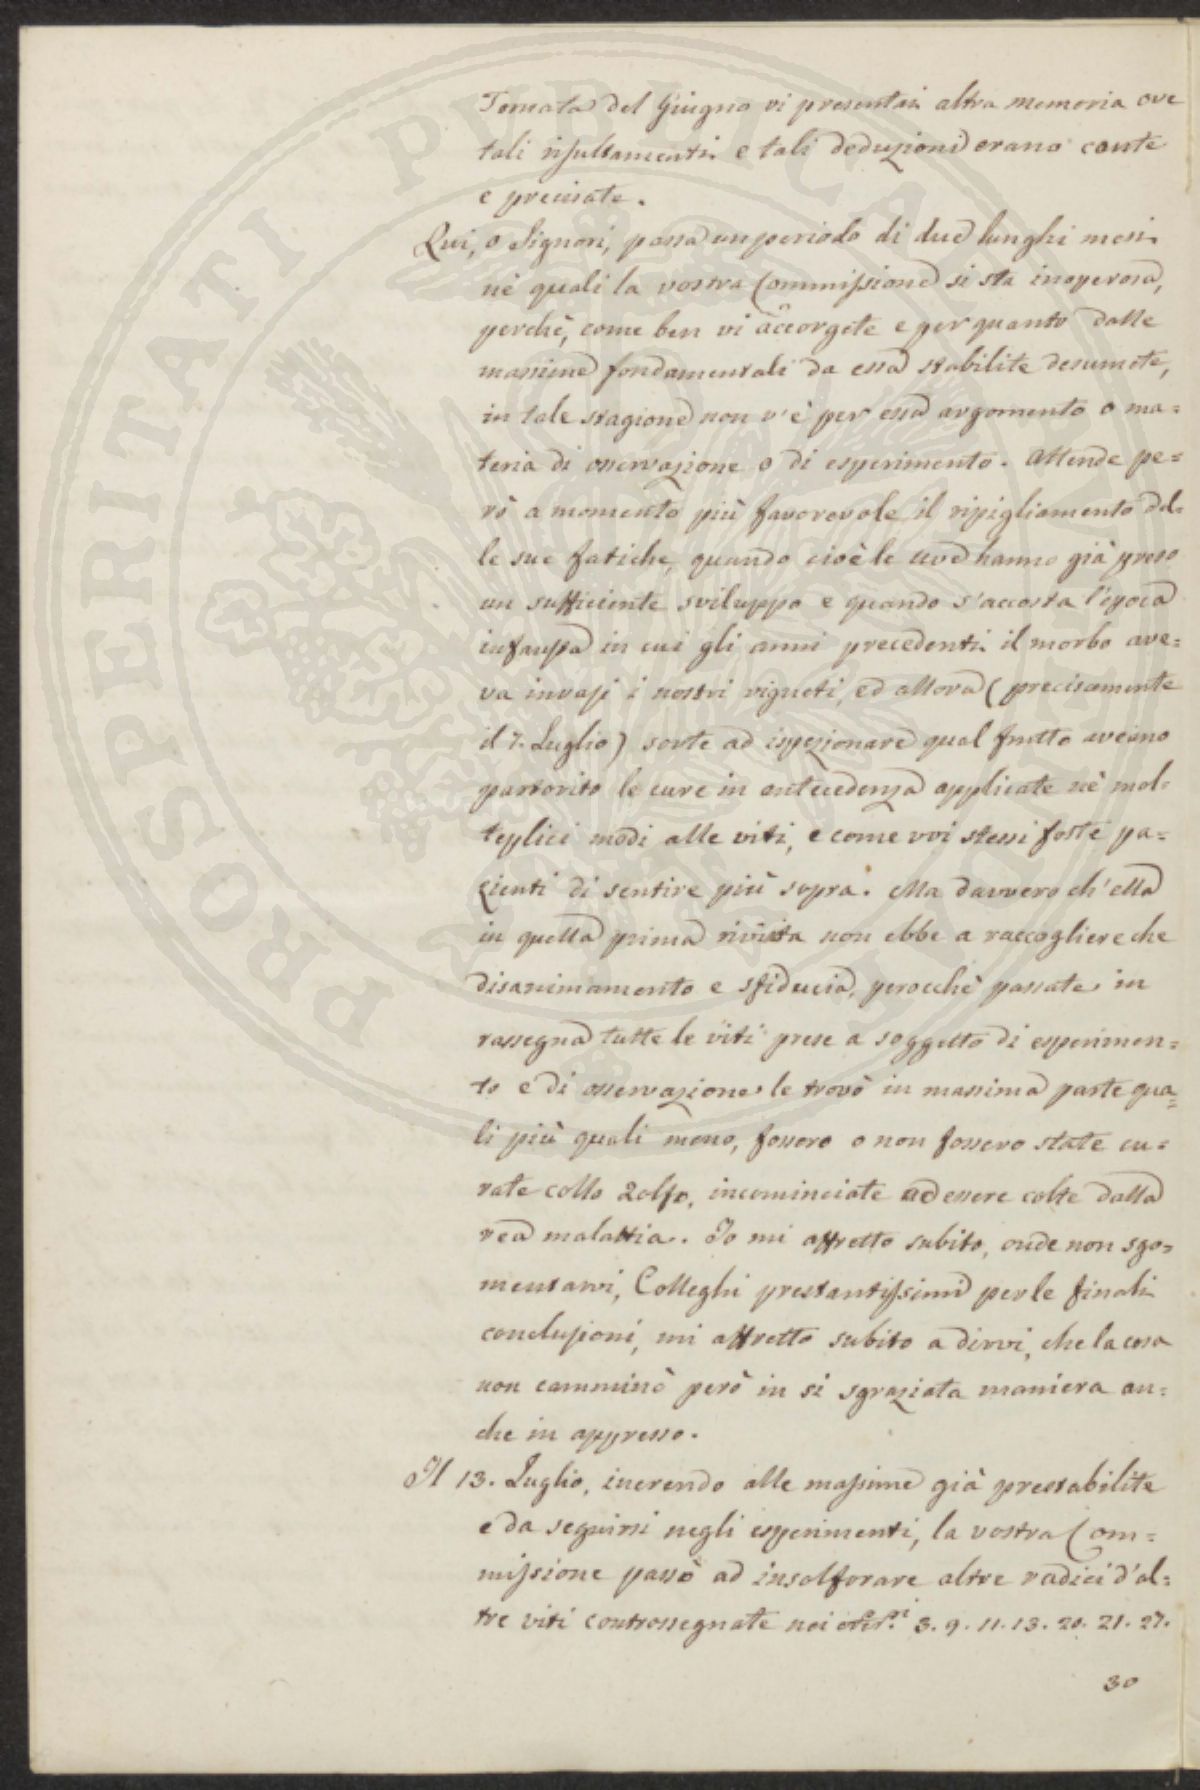 Tornata del Giugno vi presentai altra memoria ove
tali risultamenti e tali deduzioni erano conte
e precisate.
Qui, o Signori, passa un periodo di due lunghi mesi
nè quali la vostra Commissione si sta inoperosa,
perchè, come ben vi accorgete e per quanto dalle
massime fondamentali da essa stabilite desumete,
in tale stagione non v'è per essa argomento o ma=
teria di osservazione o di esperimento. Attende pe=
rò a momento più favorevole il ripigliamento del-
le sue fatiche, quando cioè le uve hanno già preso
un sufficiente sviluppo e quando s'accosta l'epoca
infausta in cui gli anni precedenti il morbo ave=
va invasi i nostri vigneti, ed allora (precisamente
il 7. Luglio) sorte ad ispezionare qual frutto aveano
partorito le cure in antecedenza applicate nè mol-
teplici modi alle viti, e come voi stessi foste pa=
zienti di sentire più sopra. Ma davvero ch'ella
in quella prima rivista non ebbe a raccogliere che
disanimamento e sfiducia, perocchè passate in
rassegna tutte le viti prese a soggetto di esperimen=
to e di osservazione le trovò in massima parte qua=
li più quali meno, fossero o non fossero state cu=
rate collo Zolfo, incominciate ad essere colte dalla
rea malattia. Io mi affretto subito, onde non sgo=
mentarvi, Colleghi prestantissimi per le finali
conclusioni, mi affretto subito a dirvi, che la cosa
non camminò però in sì sgraziata maniera an=
che in appresso.
Il 13. Luglio, inerendo alle massime già prestabilite
e da seguirsi negli esperimenti, la vostra Com=
missione passò ad insolforare altre radici d'al=
tre viti controssegnate nei 3. 9. 11. 13. 20. 21. 27.
30
PROSPERITATI PUBLICAE